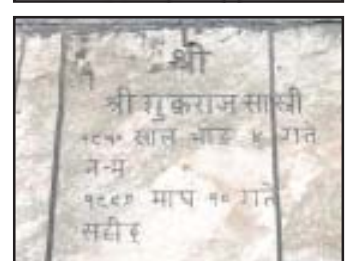 श्री
१
श्री शुक्रराज सास्त्री
१९५० साल भाद्र ४ गते
जन्म
१९९७ माघ १० गते
सहीद